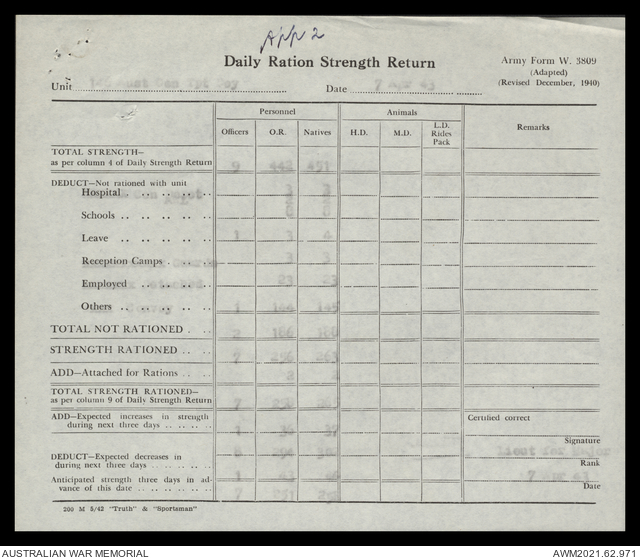 App 2
Daily Ration Strength Return
Army Form W. 3809
(Adapted)
(Revised December, 1940)
Unit
Date 7 Apr 43
Personnel
Animals
Remarks
Officers
O.R.
Natives
H.D.
M.D.
L.D.
Rides
Pack
TOTAL STRENGTH—
as per column 4 of Daily Strength Return 9 442 451
DEDUCT—Not rationed with unit
Hospital .. .. .. .. 3 3
Schools .. .. .. ..
Leave .. .. .. .. 1 3 4
Reception Camps . .. .. 3 3
Employed .. .. .. .. 23 23
Others .. .. .. .. 1 144 145
TOTAL NOT RATIONED . .. 2 186 188
STRENGTH RATIONED .. .. 7 256 263
ADD—Attached for Rations .. ..
TOTAL STRENGTH RATIONED—
as per column 9 of Daily Strength Return 7
ADD—Expected increases in strength
during next three days .. .. .. .. 1 36 37
Certified correct
Signature
DEDUCT—Expected decreases in
during next three days .. .. .. ..
Lieut for Major
Rank
Anticipated strength three days in ad-
vance of this date .. .. .. .. ..
7 Apr 43
Date
200 M 5/42 "Truth" & "Sportsman"
AUSTRALIAN WAR MEMORIAL
AWM2021.62.971